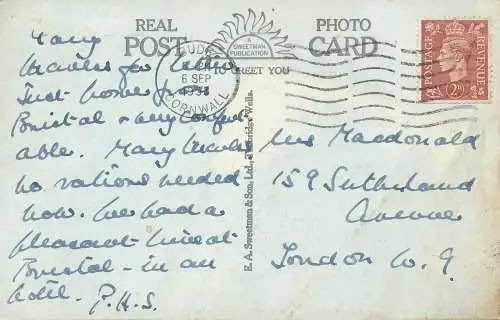 REAL PHOTO
POST CARD
A
SWEETMAN
PUBLICATION
TO GREET YOU
BUDE
6 SEP
CORNWALL
POSTAGE REVENUE
2D
E. A. Sweetman & Son, Ltd., Tunbridge Wells.
Many
thanks for letter
Just home from
Bristol & very comfort
able. Many thanks
no rations needed
now. We had a
pleasant time at
Bristol - in an
hotel. P.H.S.
Mrs Macdonald
159 Sutherland
Avenue
London W. 9